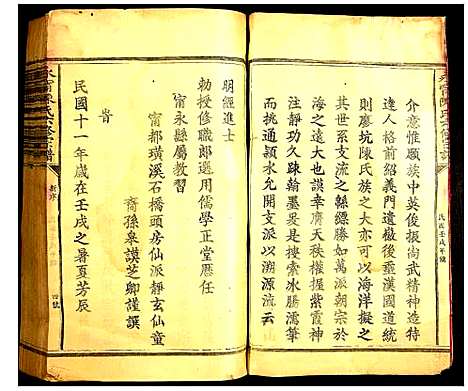 介意惟願族中英俊振尚武精神造特
達人格前紹義門遺徽後垂漢國道統
則慶坑陳氏族之大亦可以海洋擬之
其世系支流之縣纏勝如萬派朝宗于
海之遠大也謨幸膺天秩權握紫霄神
注靜功久疎翰墨爰是搜索冰勝濡筆
而挑通潁水允開天派以溯源流云
明經進士
勅授修職郎選用儒學正堂歷任
甯永縣屬教習
甯都璜溪石橋頭房仙派靜玄仙童
裔孫皋謨芝卿謹譔
旹
民國十一年歲在壬戌之暑夏芳辰
陳氏
譜
民國壬戌年
新序
四號